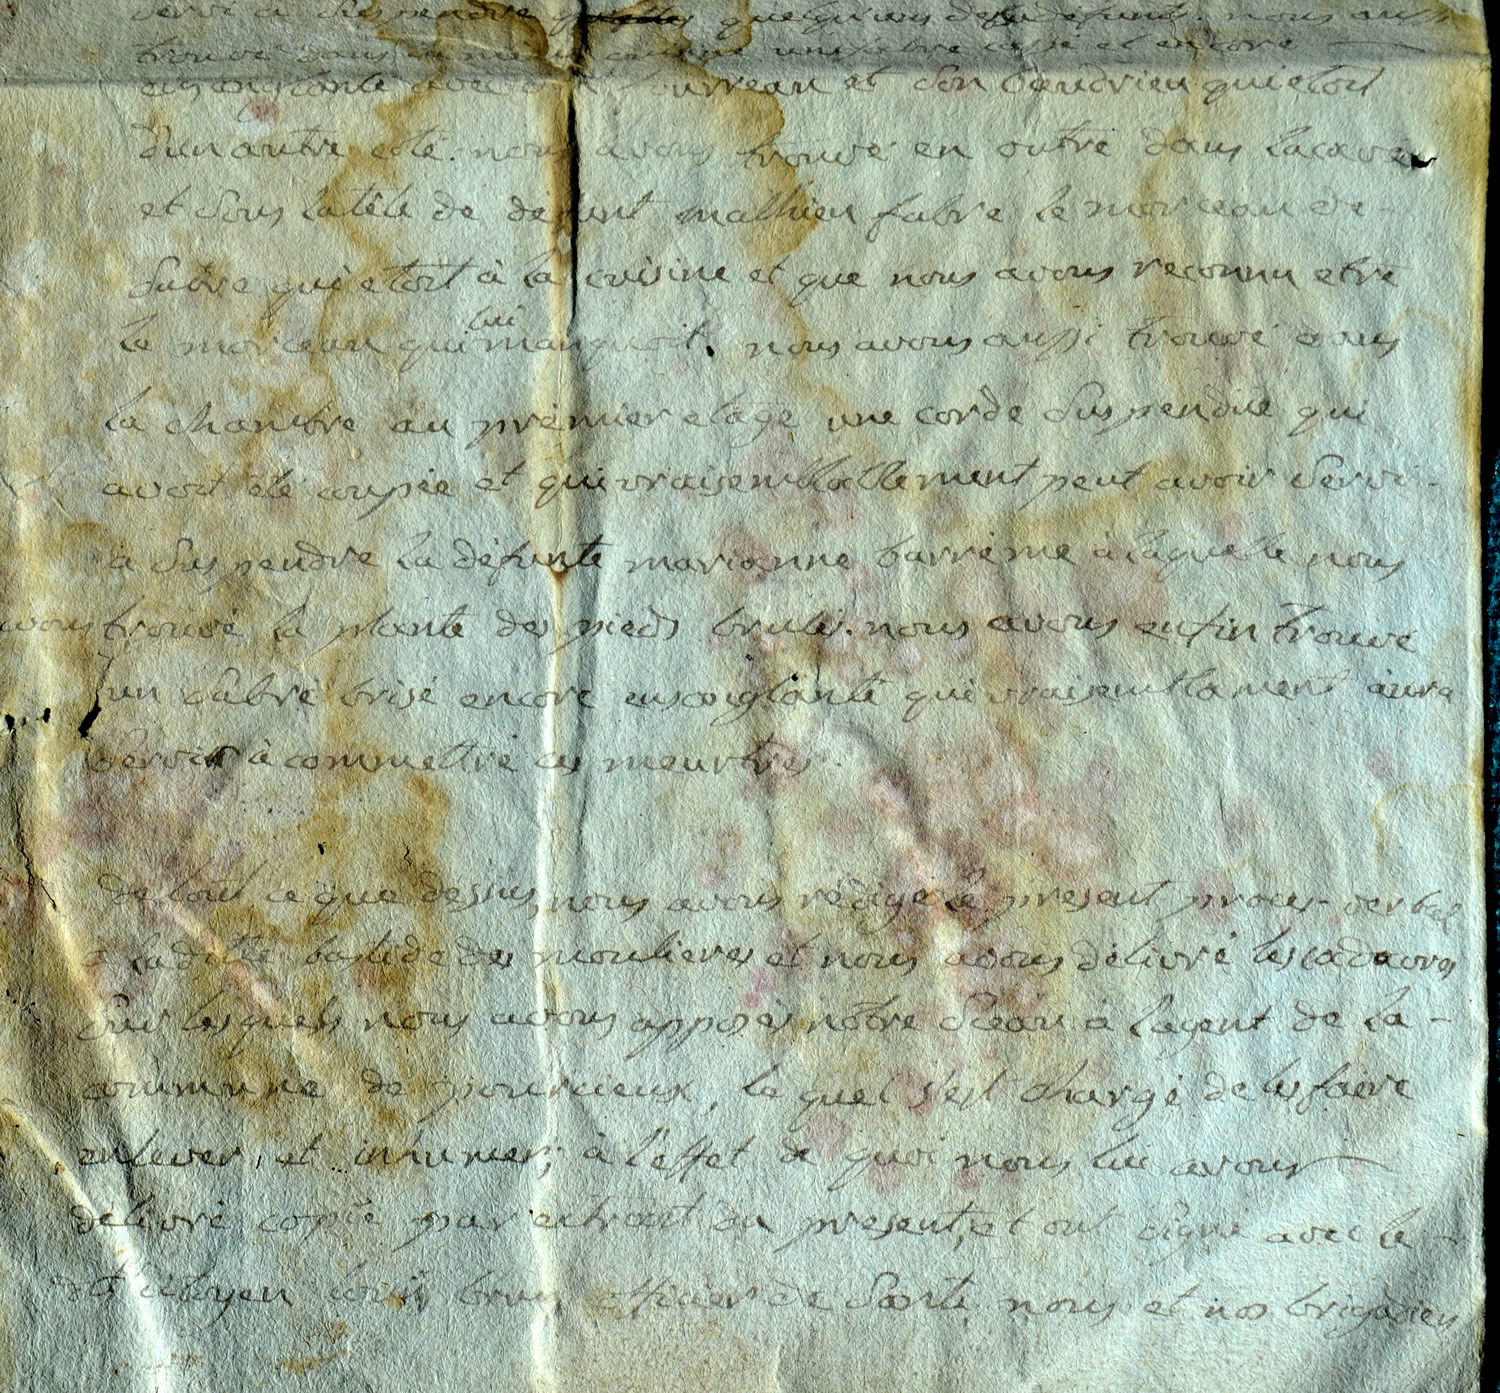 servi à suspendre quelqu'uns des défunts. nous avons
trouvé dans la même un sabre cassé et encore
ensanglanté avec son fourreau et son baudrieu qui etoit
d'un autre coté. nous avons trouvé en outre dans la cave
et sous la tête de défunt mathieu fabre le morceau de-
sabre qui etoit à la cuisine et que nous avons reconnu etre
le morceau qui lui manquoit. nous avons aussi trouvé dans
la chambre au premier etage une corde suspendue qui
avoit été coupée et qui vraisemblablement peut avoir servi-
à suspendre la défunte marianne barrême à laquelle nous
avons trouvé la plante des pieds brulée. nous avons enfin trouvé
un sabre brisé encore ensanglanté qui vraisemblament aura
servir à commettre ces meurtres.
de tout ce que dessus, nous avons rédigé le present procès-verbal
à la ditte bastide des moulieres et nous avons délivré les cadavres
sur lesquels nous avons apposés nôtre sceau à l'agent de la-
commune de pourcieux, le quel s'est chargé de les faire
enlever, et inhumer; à l'effet de quoi nous lui avons
delivré copie par extrait du present, et ont signé avec le-
dt citoyen louis brun officier de santé nous et nos brigadiers